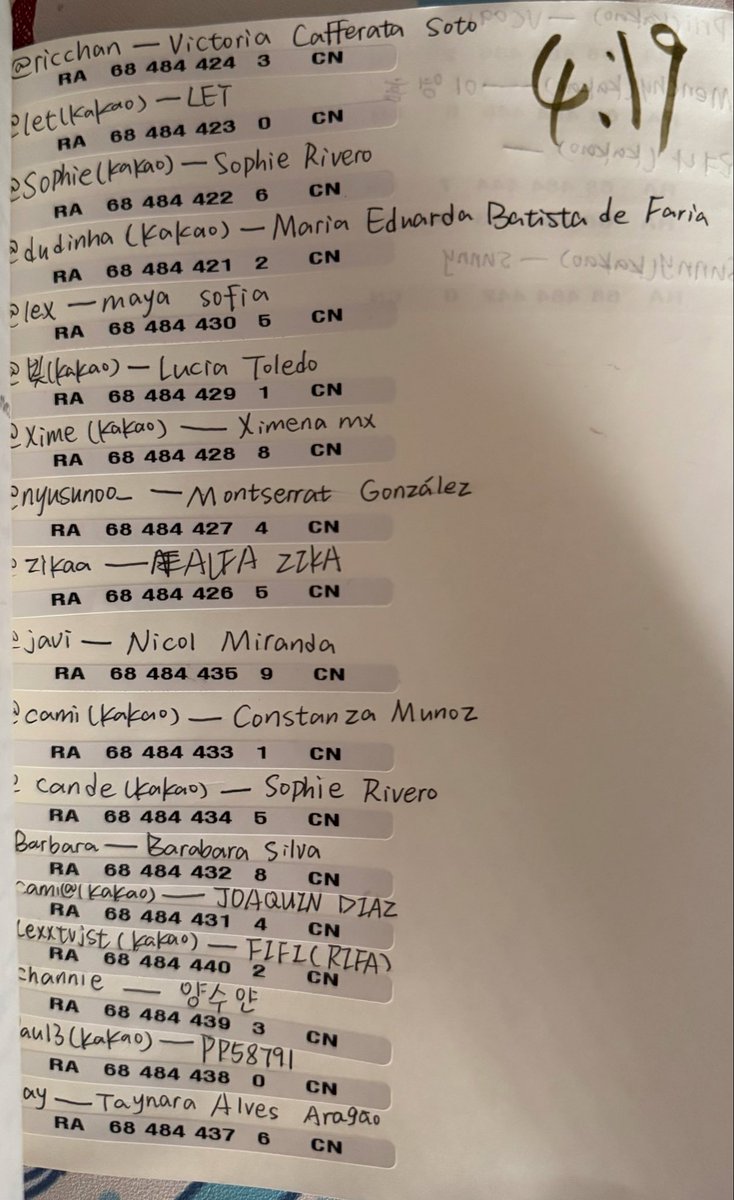 4:19
@ricchan — Victoria Cafferata Soto
RA 68 484 424 3 CN
@let(kakao) — LET
RA 68 484 423 0 CN
@Sophie(kakao) — Sophie Rivero
RA 68 484 422 6 CN
@dudinha (kakao) — Maria Eduarda Batista de Faria
RA 68 484 421 2 CN
@lex — maya sofia
RA 68 484 430 5 CN
@빛(kakao) — Lucia Toledo
RA 68 484 429 1 CN
@Xime (kakao) — Ximena mx
RA 68 484 428 8 CN
@nyusunoo_ — Montserrat González
RA 68 484 427 4 CN
@zikaa — ALFA ZIKA
RA 68 484 426 5 CN
@javi — Nicol Miranda
RA 68 484 435 9 CN
@cami (kakao) — Constanza Munoz
RA 68 484 433 1 CN
@cande (kakao) — Sophie Rivero
RA 68 484 434 5 CN
Barbara — Barabara Silva
RA 68 484 432 8 CN
cami@(kakao) — JOAQUIN DIAZ
RA 68 484 431 4 CN
lexxtvjst (kakao) — FIFI(RIFA)
RA 68 484 440 2 CN
channie — 양수얀
RA 68 484 439 3 CN
aul3(kakao) — PP58791
RA 68 484 438 0 CN
ay — Taynara Alves Aragão
RA 68 484 437 6 CN